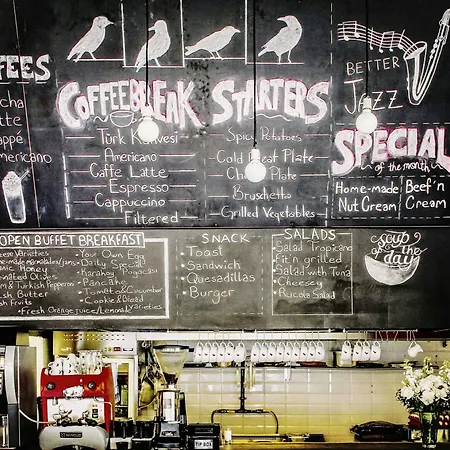 BETTER
JAZZ
FEES
COFFEEBREAK
Türk Kahvesi
Americano
Caffe Latte
Espresso
Cappuccino
Filtered
STARTERS
Spicy Potatoes
Cold Meat Plate
Plate
Bruschetta
Grilled Vegetables
SPECIAL
of the month
Home-made
Nut Cream
Beef'n
Cream
americano
OPEN BUFFET BREAKFAST
Cheese Varieties
Honey
& Turkish Pepperoni
Fresh Butter
Fresh Fruits
Your Own Egg
Daily Special
Karaköy Pogacasi
Pancake
Tomato & Cucumber
Cookie & Bread
Fresh Orange Juice / Lemonade Varieties
SNACK
Toast
Sandwich
Quesadillas
Burger
SALADS
Salad Tropicano
Fit'n grilled
Salad with Tuna
Cheesey
Rucola Salad
Soup
of the
day
TIP BOX